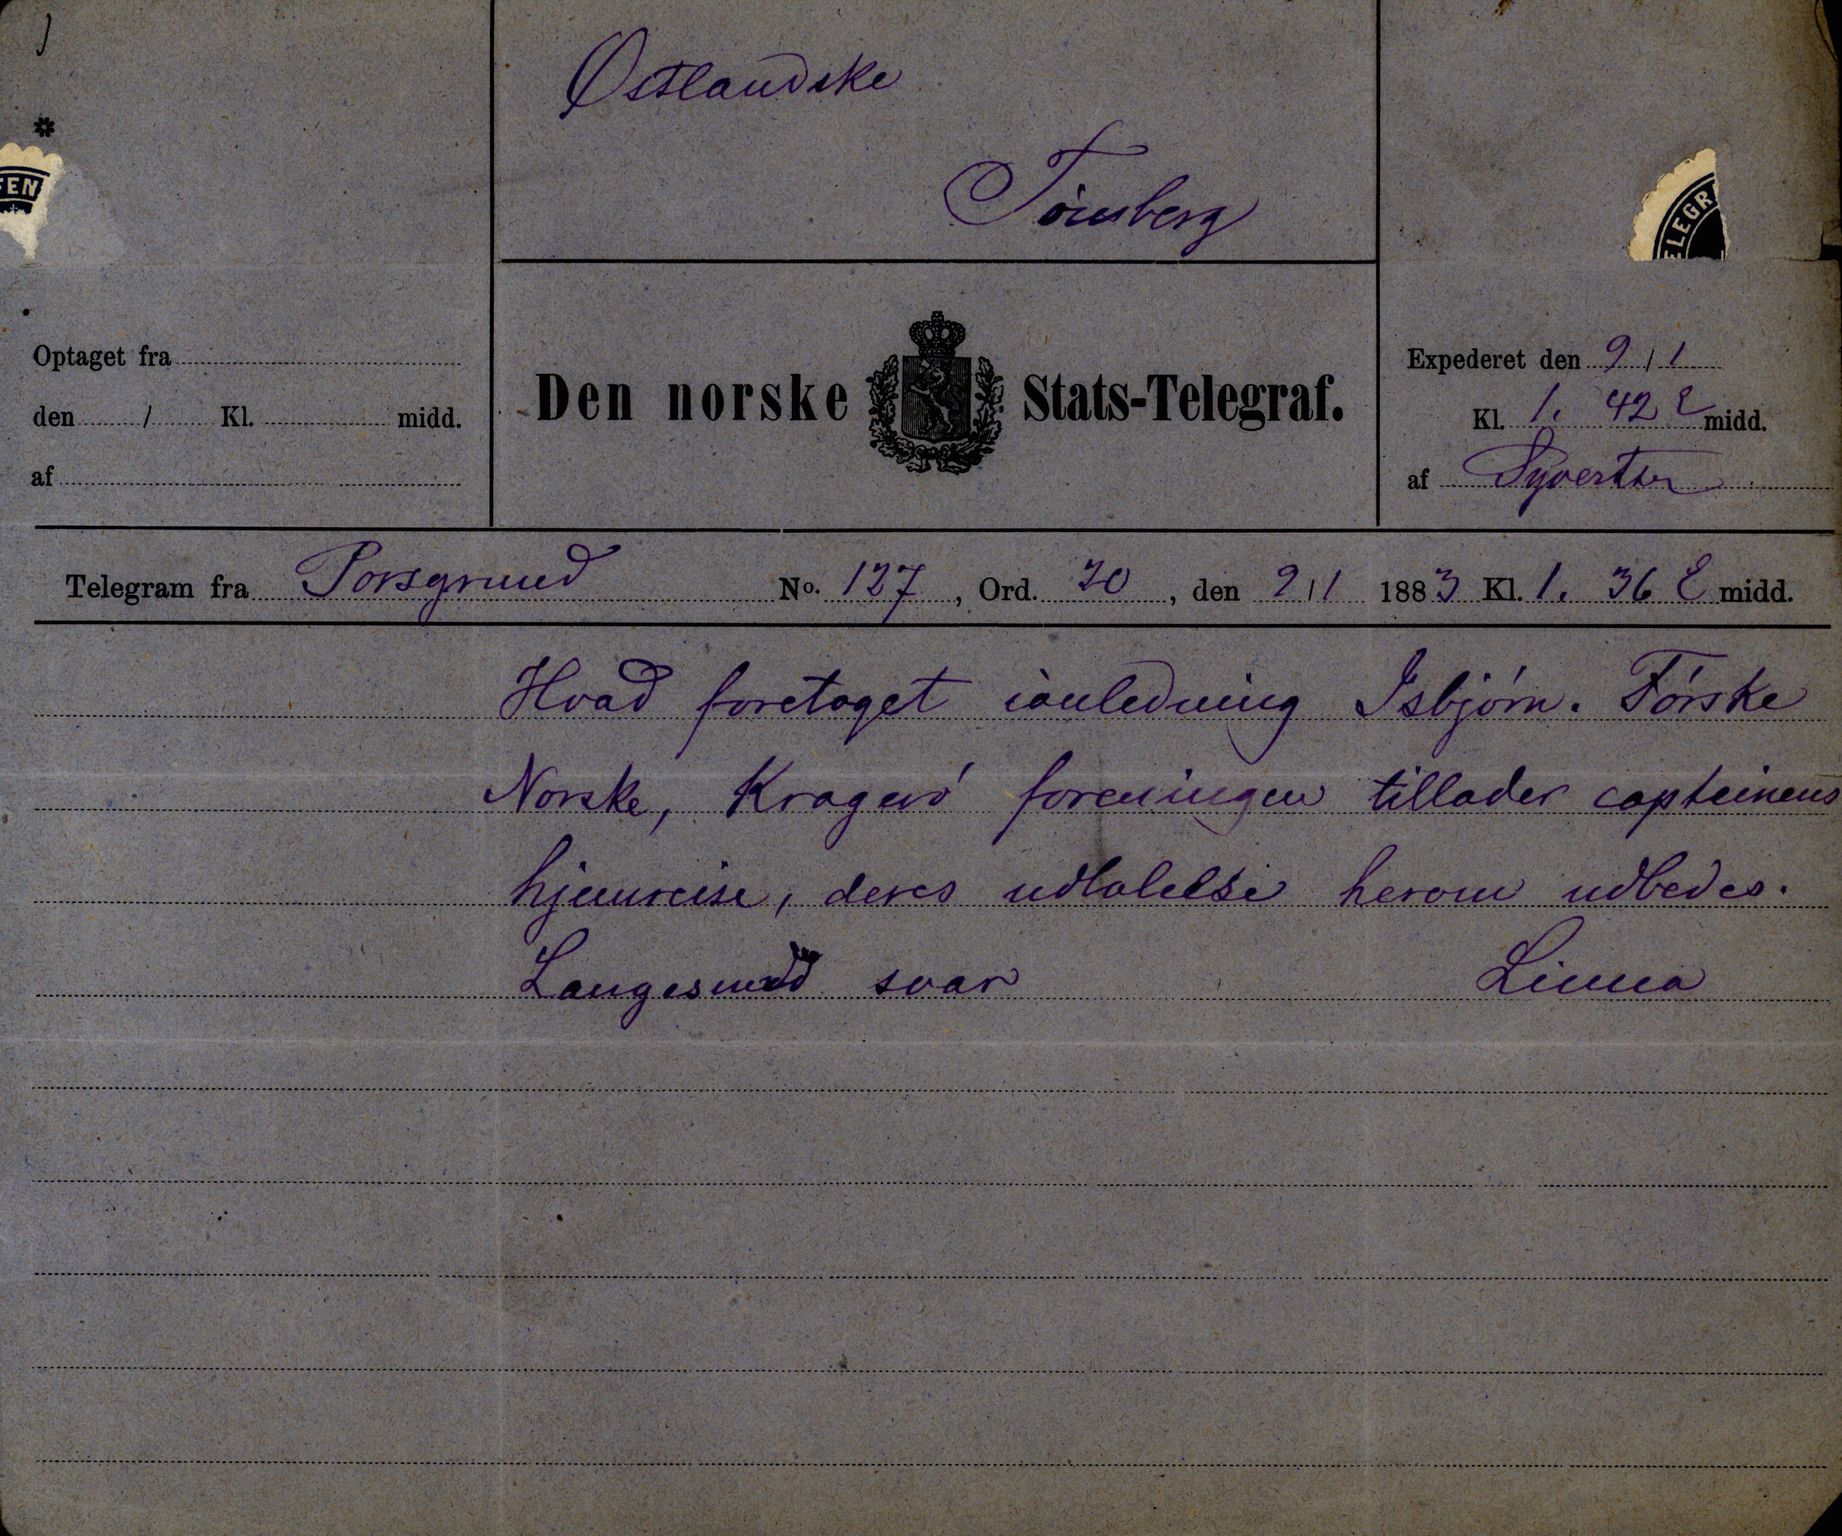 Østlandske
Tønsberg
FEN
TELEGR
Optaget fra
den / Kl. midd.
af
Den norske Stats-Telegraf.
Expederet den 9/1
Kl. 1. 42 E midd.
af Syvertsen
Telegram fra Porsgrund No. 127, Ord. 20, den 9/1 1883 Kl. 1. 36 E midd.
Hvad foretaget ianledning Isbjørn. Førske
Norske, Kragerø foreningen tillader capteinens
hjemreise, deres udtalelse herom udbedes.
Langesund svar Linna